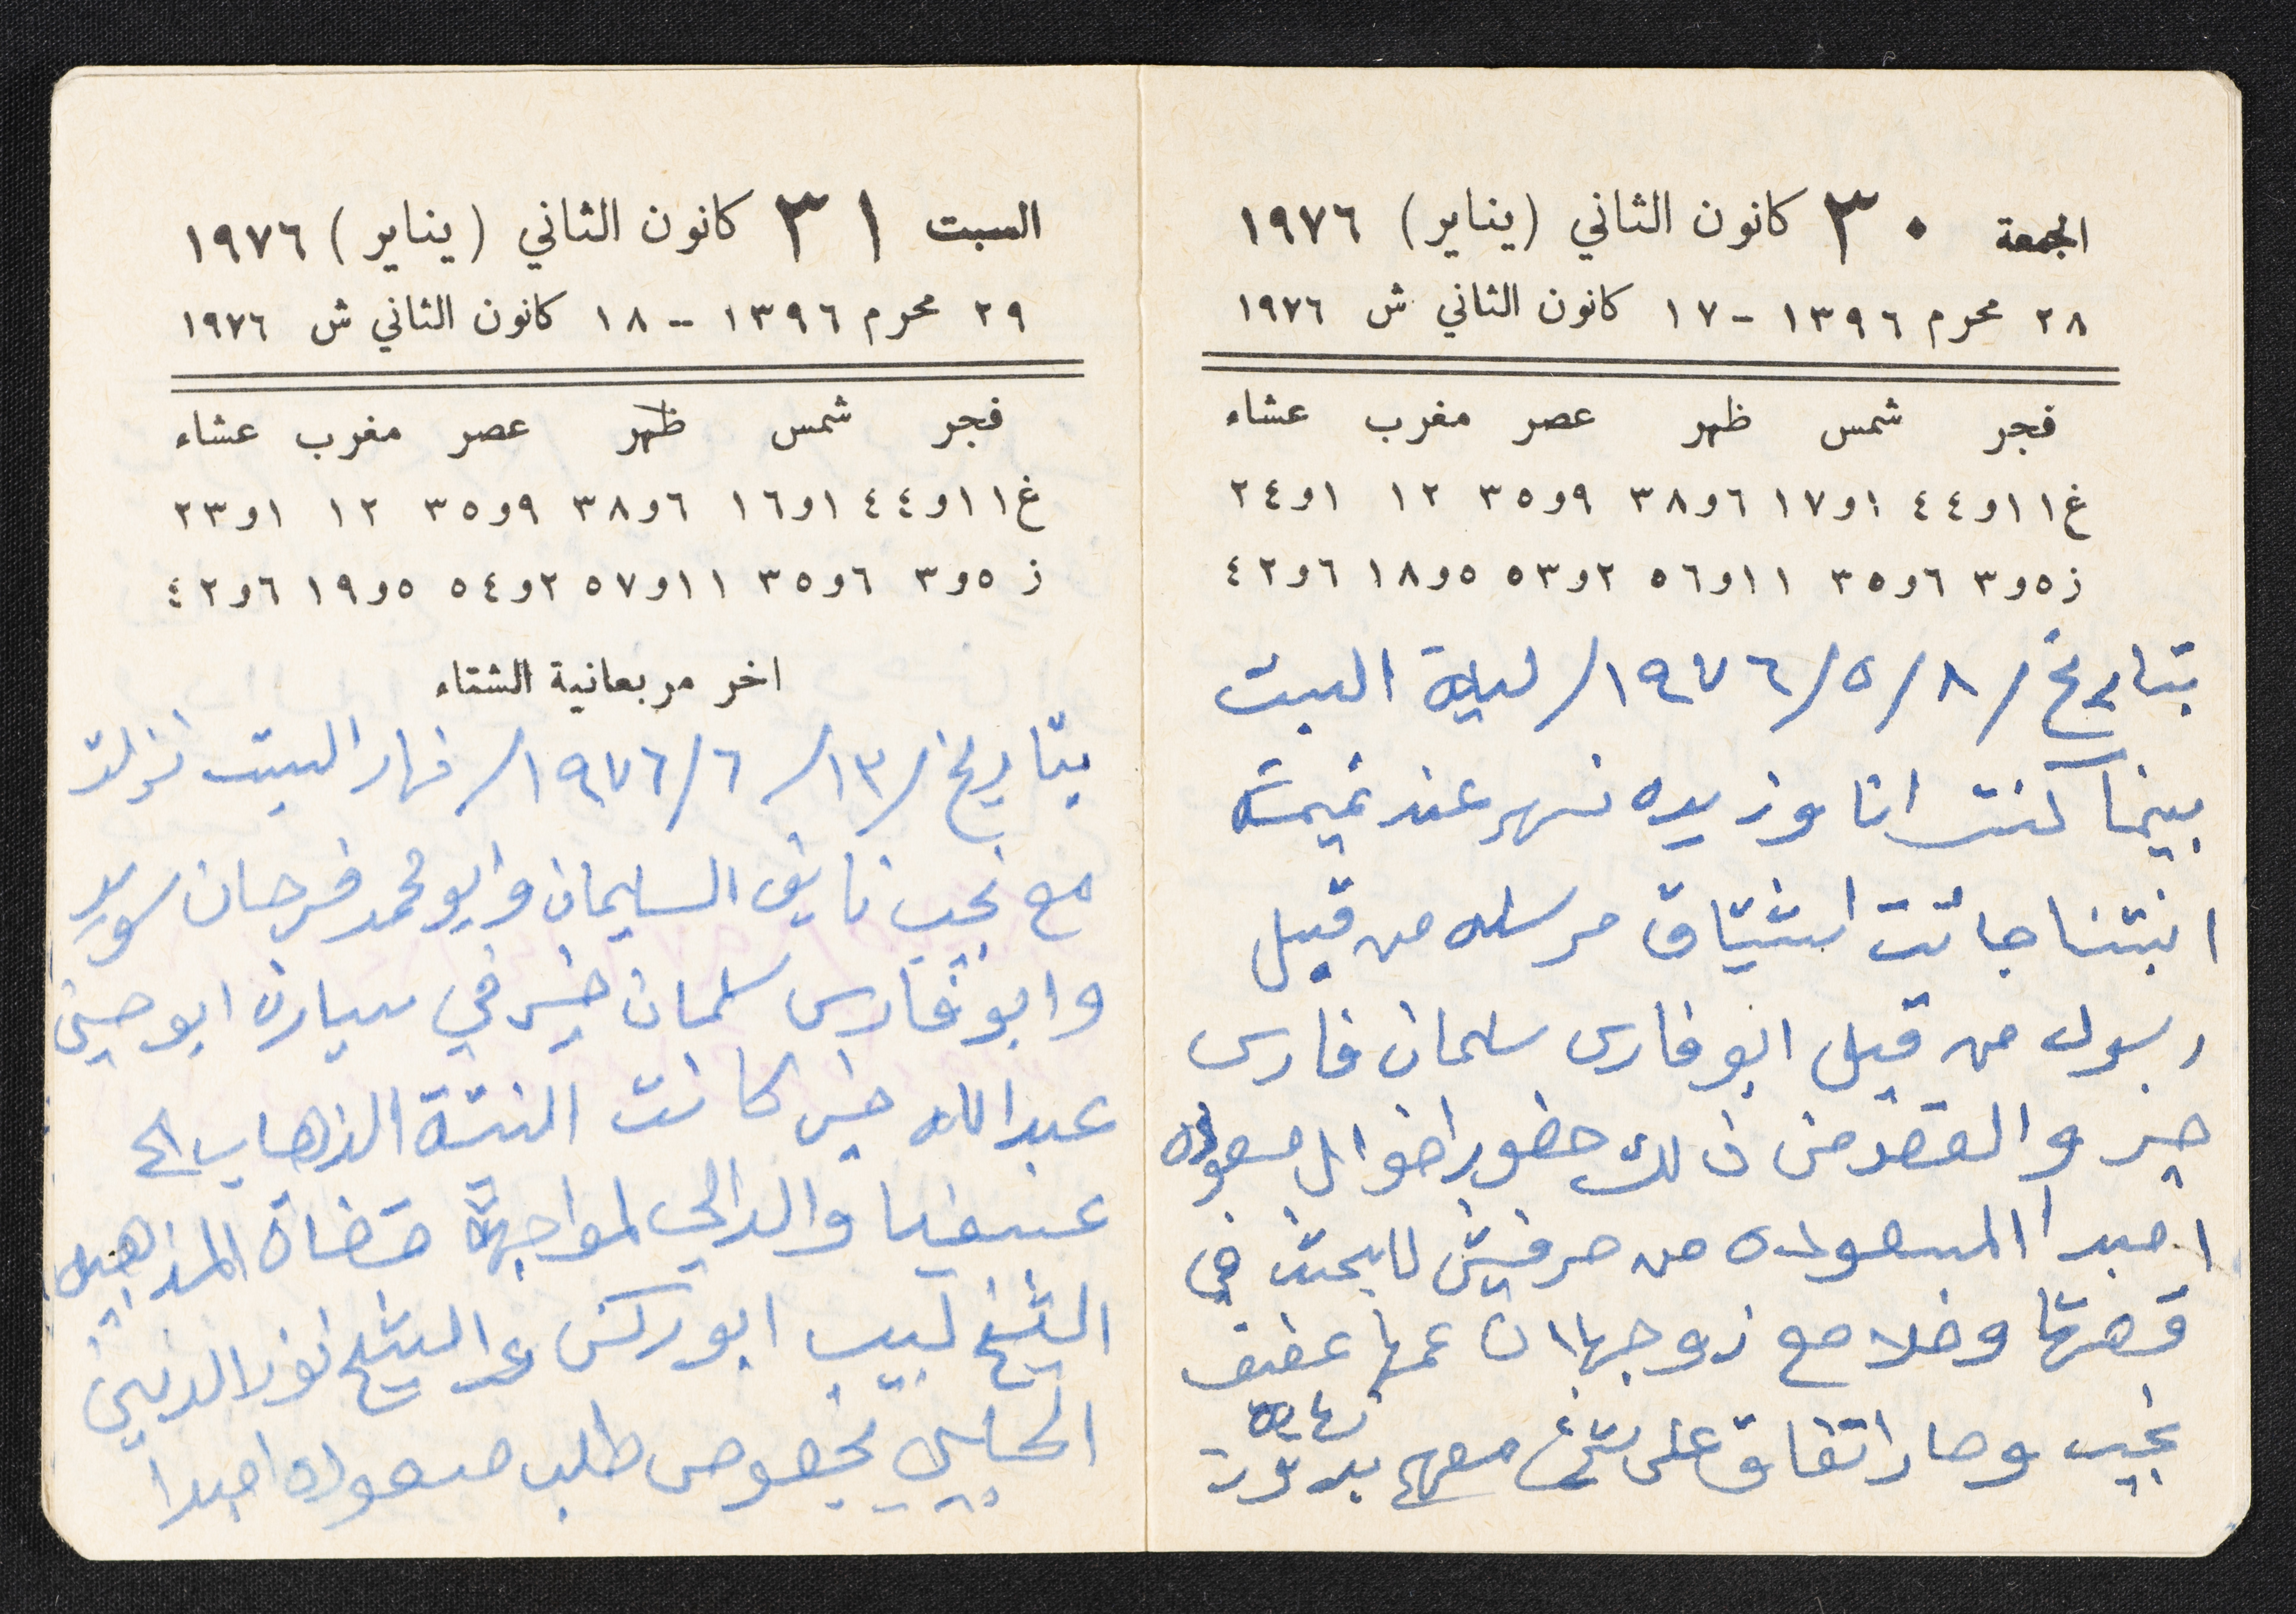 الجمعة ٣٠ كانون الثاني (يناير) ١٩٧٦
٢٨ محرم ١٣٩٦ - ١٧ كانون الثاني ش ١٩٧٦
فجر شمس ظهر عصر مغرب عشاء
غ ١١و٤٤ ١و١٧ ٦و٣٨ ٩و٣٥ ١٢ ١و٢٤
ز ٥و٣ ٦و٣٥ ١١و٥٦ ٢و٥٣ ٥و١٨ ٦و٤٢
بتاريخ /٨/٥/١٩٧٦/ ليلة السبت
بينما كنت انا وزيده نسهر عند نجيمة
ابنتنا جائت اشتياق مرسله من قبل
رسول من قبل ابو فارس سلمان فارس
خير والقصد من ذلك حضور اخوال مسعوده
امبدا المسعوده من حرفيش للبحث في
قصتها وخلا مع زوجها ان عمها عفيف
نجيب وصار اتفاق على معهم بدون
السبت ٣١ كانون الثاني (يناير) ١٩٧٦
٢٩ محرم ١٣٩٦ -- ١٨ كانون الثاني ش ١٩٧٦
فجر شمس ظهر عصر مغرب عشاء
غ ١١و٤٤ ١و١٦ ٦و٣٨ ٩و٣٥ ١٢ ١و٢٣
ز ٥و٣ ٦و٣٥ ١١و٥٧ ٢و٥٤ ٥و١٩ ٦و٤٢
اخر مربعانية الشتاء
بتاريخ /١٣/٦/١٩٧٦/ نهار السبت نزلت
مع نجيب نايف السليمان وابو محمد فرحان سويد
وابو فارس سلمان خير في سيارة ابو حسين
عبدالله خير كانت النية الذهاب الى
عسفيا والدالي لمواجهة قضاة المذاهب
الشيخ لبيب ابو ركن والشيخ نور الدين
الحلبي بخصوص طلب مسعوده امبدا